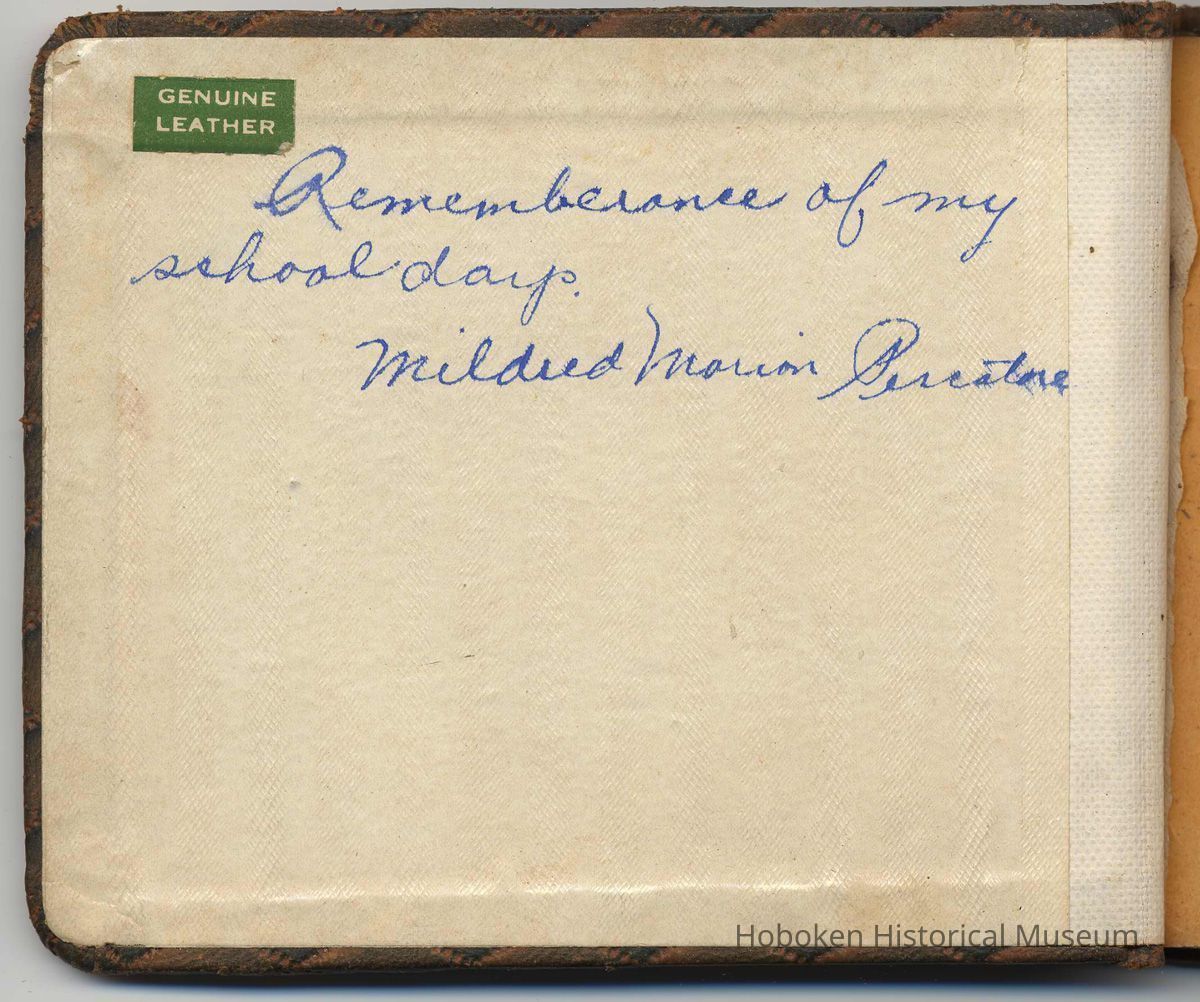 GENUINE
LEATHER
Rememberance of my
school days.
Mildred Marion Pescatore
Hoboken Historical Museum